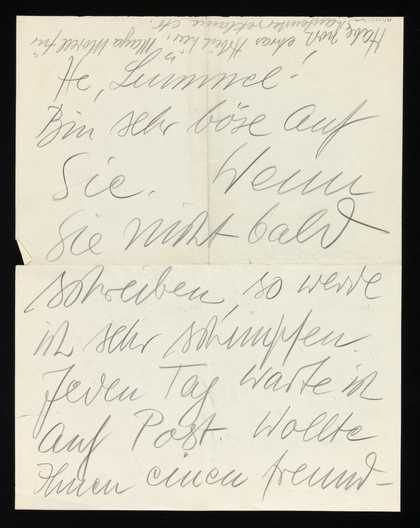 He, Lümmel!
Bin sehr böse auf
Sie. Wenn
Sie nicht bald
schreiben, so werde
ich sehr schimpfen.
Jeden Tag warte ich
auf Post. Wollte
Ihnen einen freund-
Habe noch etwas Arbeit hier: